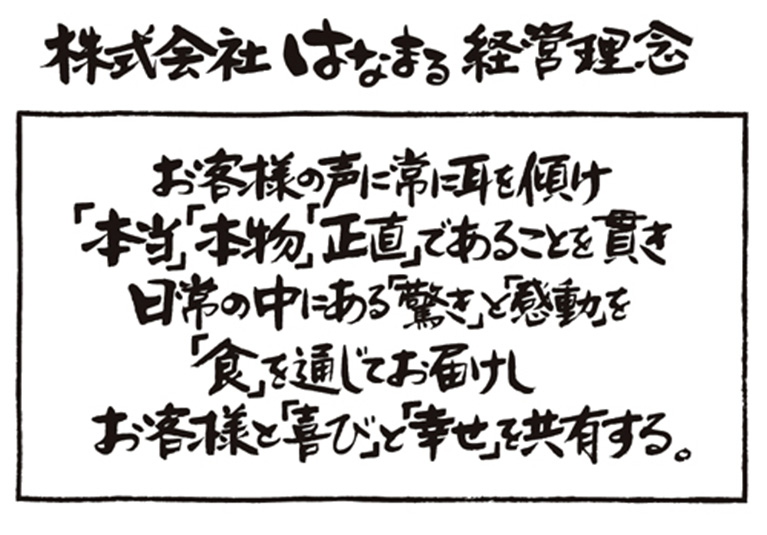 株式会社 はなまる 経営理念
お客様の声に常に耳を傾け
「本当」「本物」「正直」であることを貫き
日常の中にある「驚き」と「感動」を
「食」を通じてお届けし
お客様と「喜び」と「幸せ」を共有する。